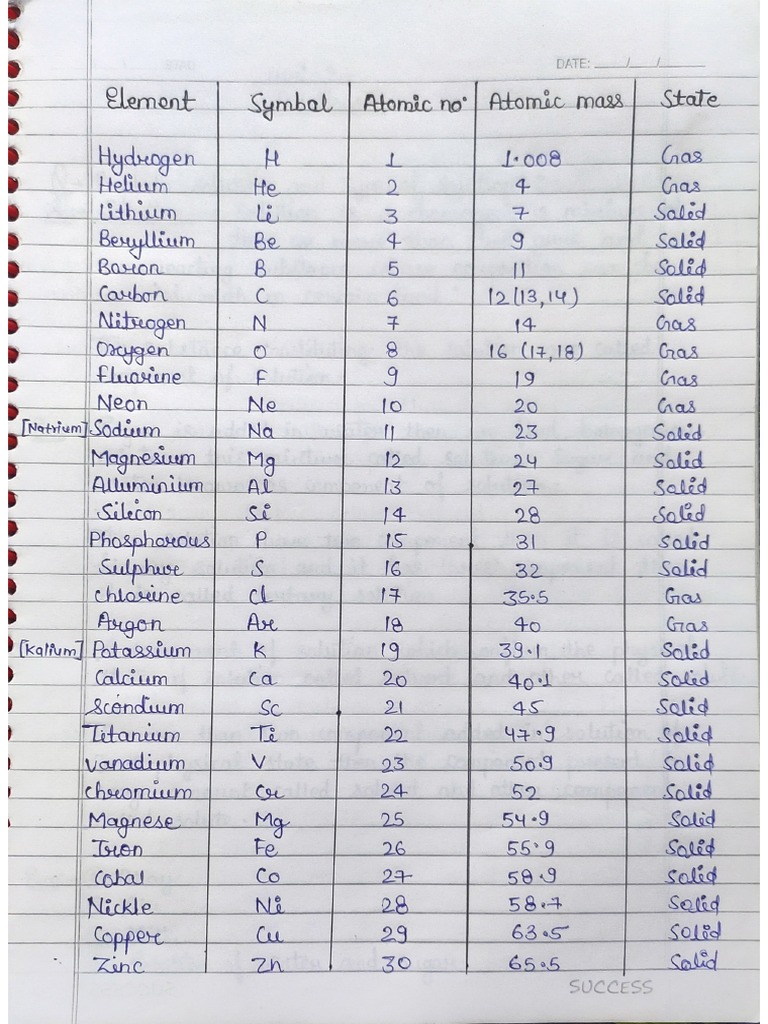 DATE: ___/___/______
Element Symbol Atomic no. Atomic mass State
Hydrogen H 1 1.008 Gas
Helium He 2 4 Gas
Lithium Li 3 7 Solid
Beryllium Be 4 9 Solid
Boron B 5 11 Solid
Carbon C 6 12 (13,14) Solid
Nitrogen N 7 14 Gas
Oxygen O 8 16 (17,18) Gas
Fluorine F 9 19 Gas
Neon Ne 10 20 Gas
[Natrium] Sodium Na 11 23 Solid
Magnesium Mg 12 24 Solid
Alluminium Al 13 27 Solid
Silicon Si 14 28 Solid
Phosphorous P 15 31 Solid
Sulphur S 16 32 Solid
chlorine Cl 17 35.5 Gas
Argon Ar 18 40 Gas
[Kalium] Potassium K 19 39.1 Solid
Calcium Ca 20 40.1 Solid
Scondium Sc 21 45 Solid
Titanium Ti 22 47.9 Solid
vanadium V 23 50.9 Solid
chromium Cr 24 52 Solid
Magnese Mg 25 54.9 Solid
Iron Fe 26 55.9 Solid
Cobal Co 27 58.9 Solid
Nickle Ni 28 58.7 Solid
Copper Cu 29 63.5 Solid
Zinc Zn 30 65.5 Solid
SUCCESS